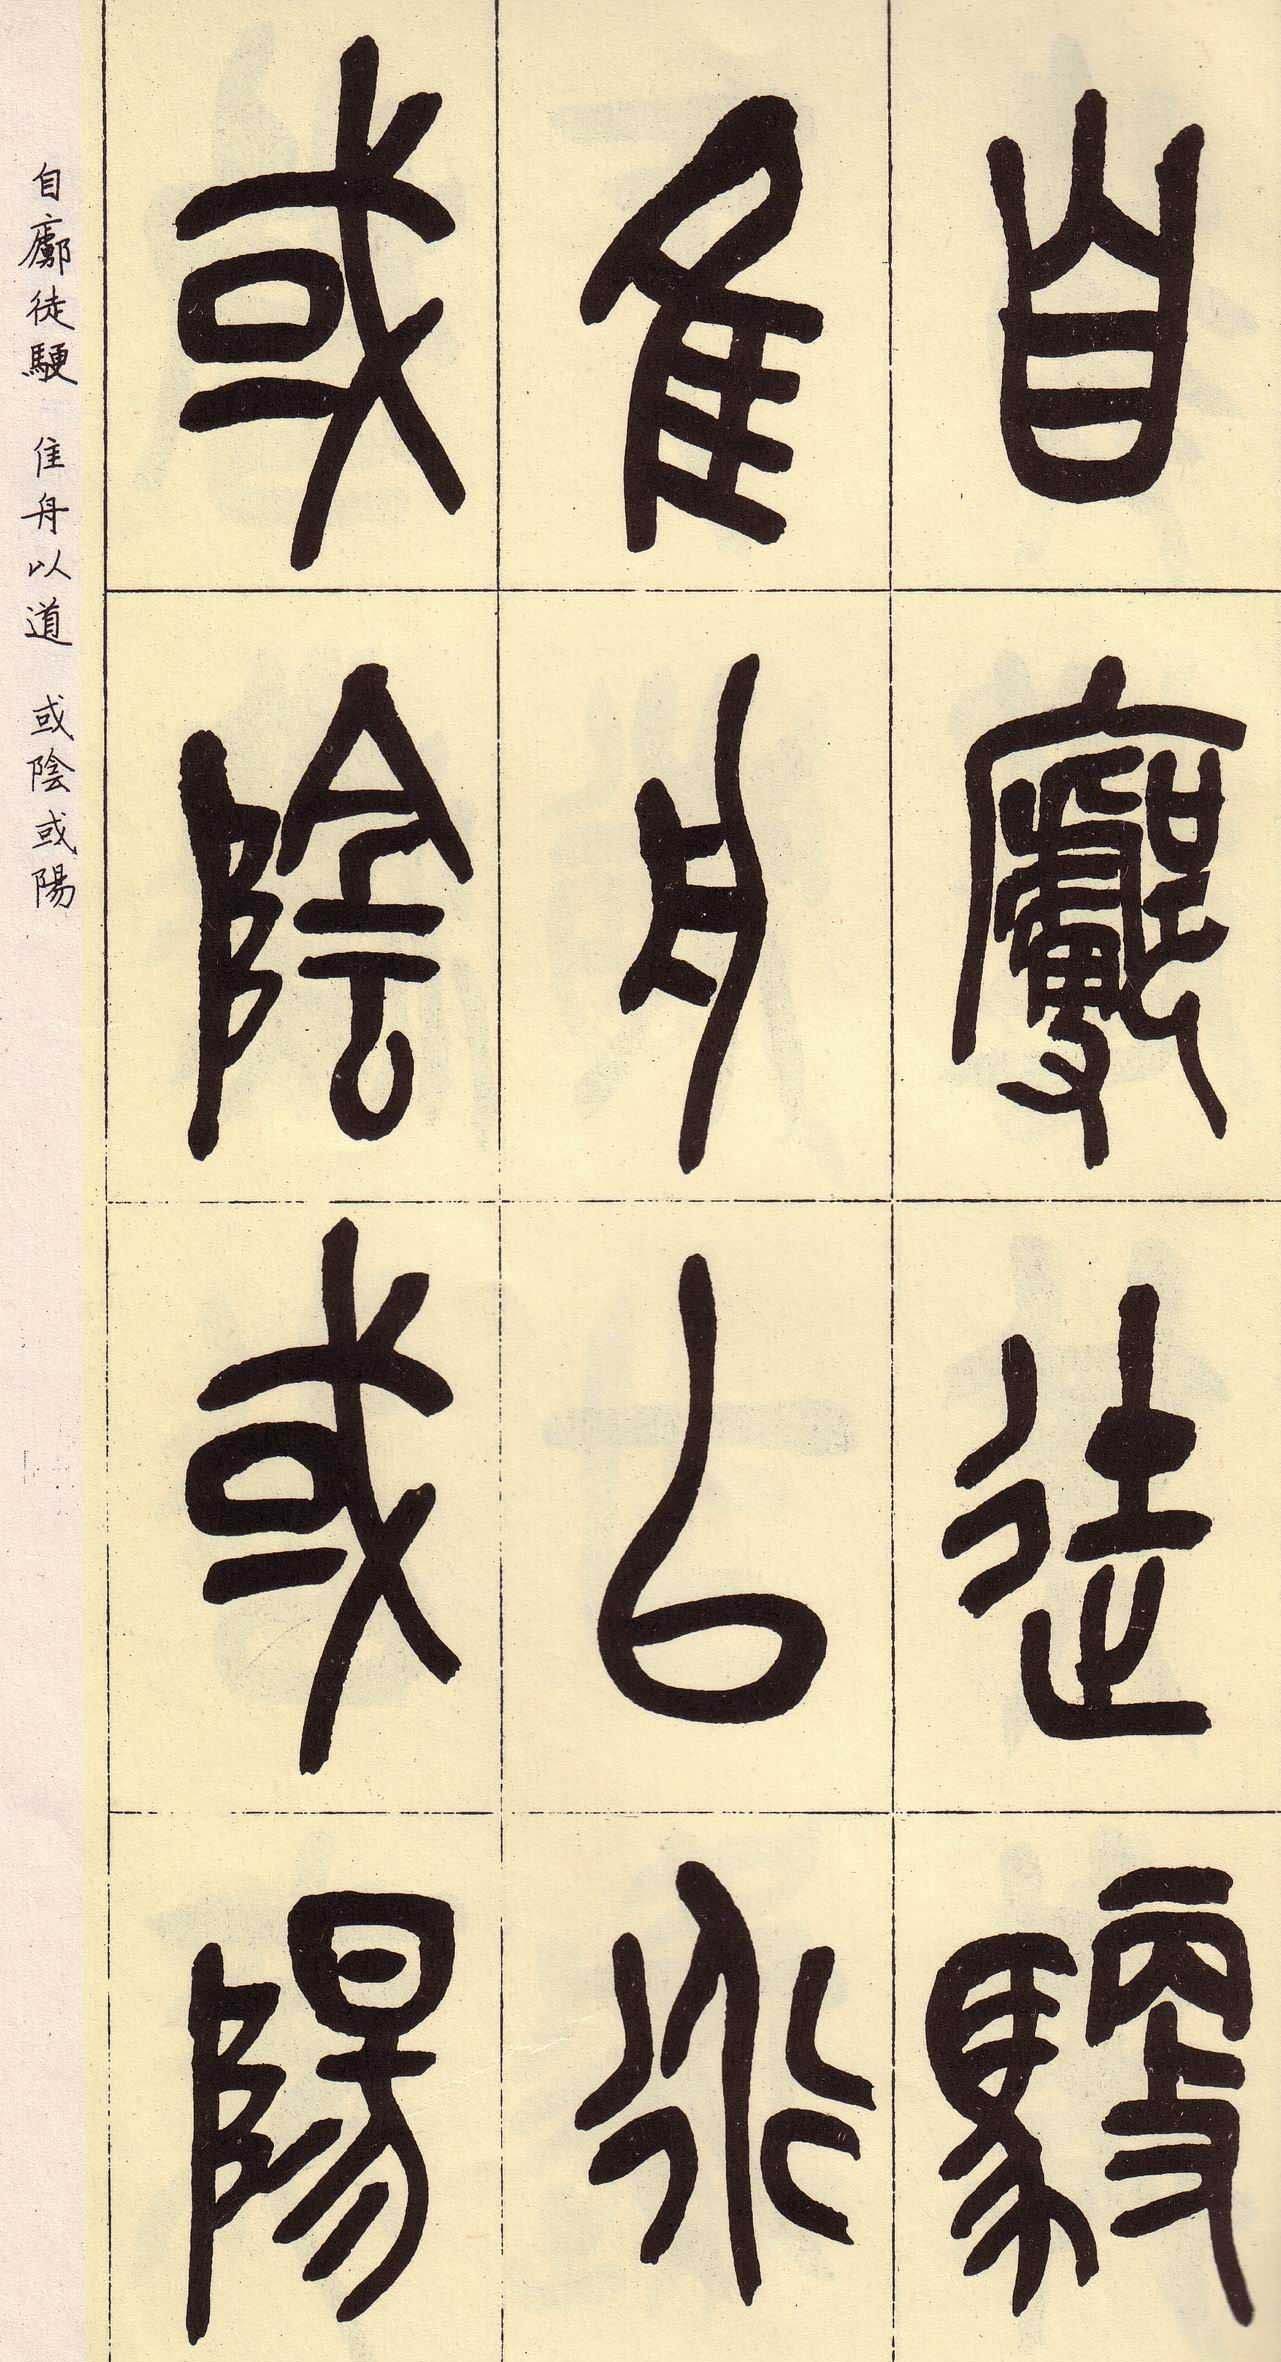 自廊徒驅
隹舟以道
或陰或陽
自徒 隹舟以道 或陰或陽